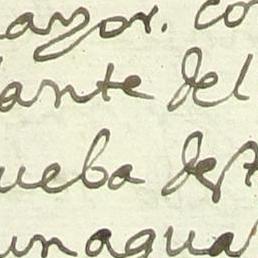 ayor. co
ante del
ueba des
unagua